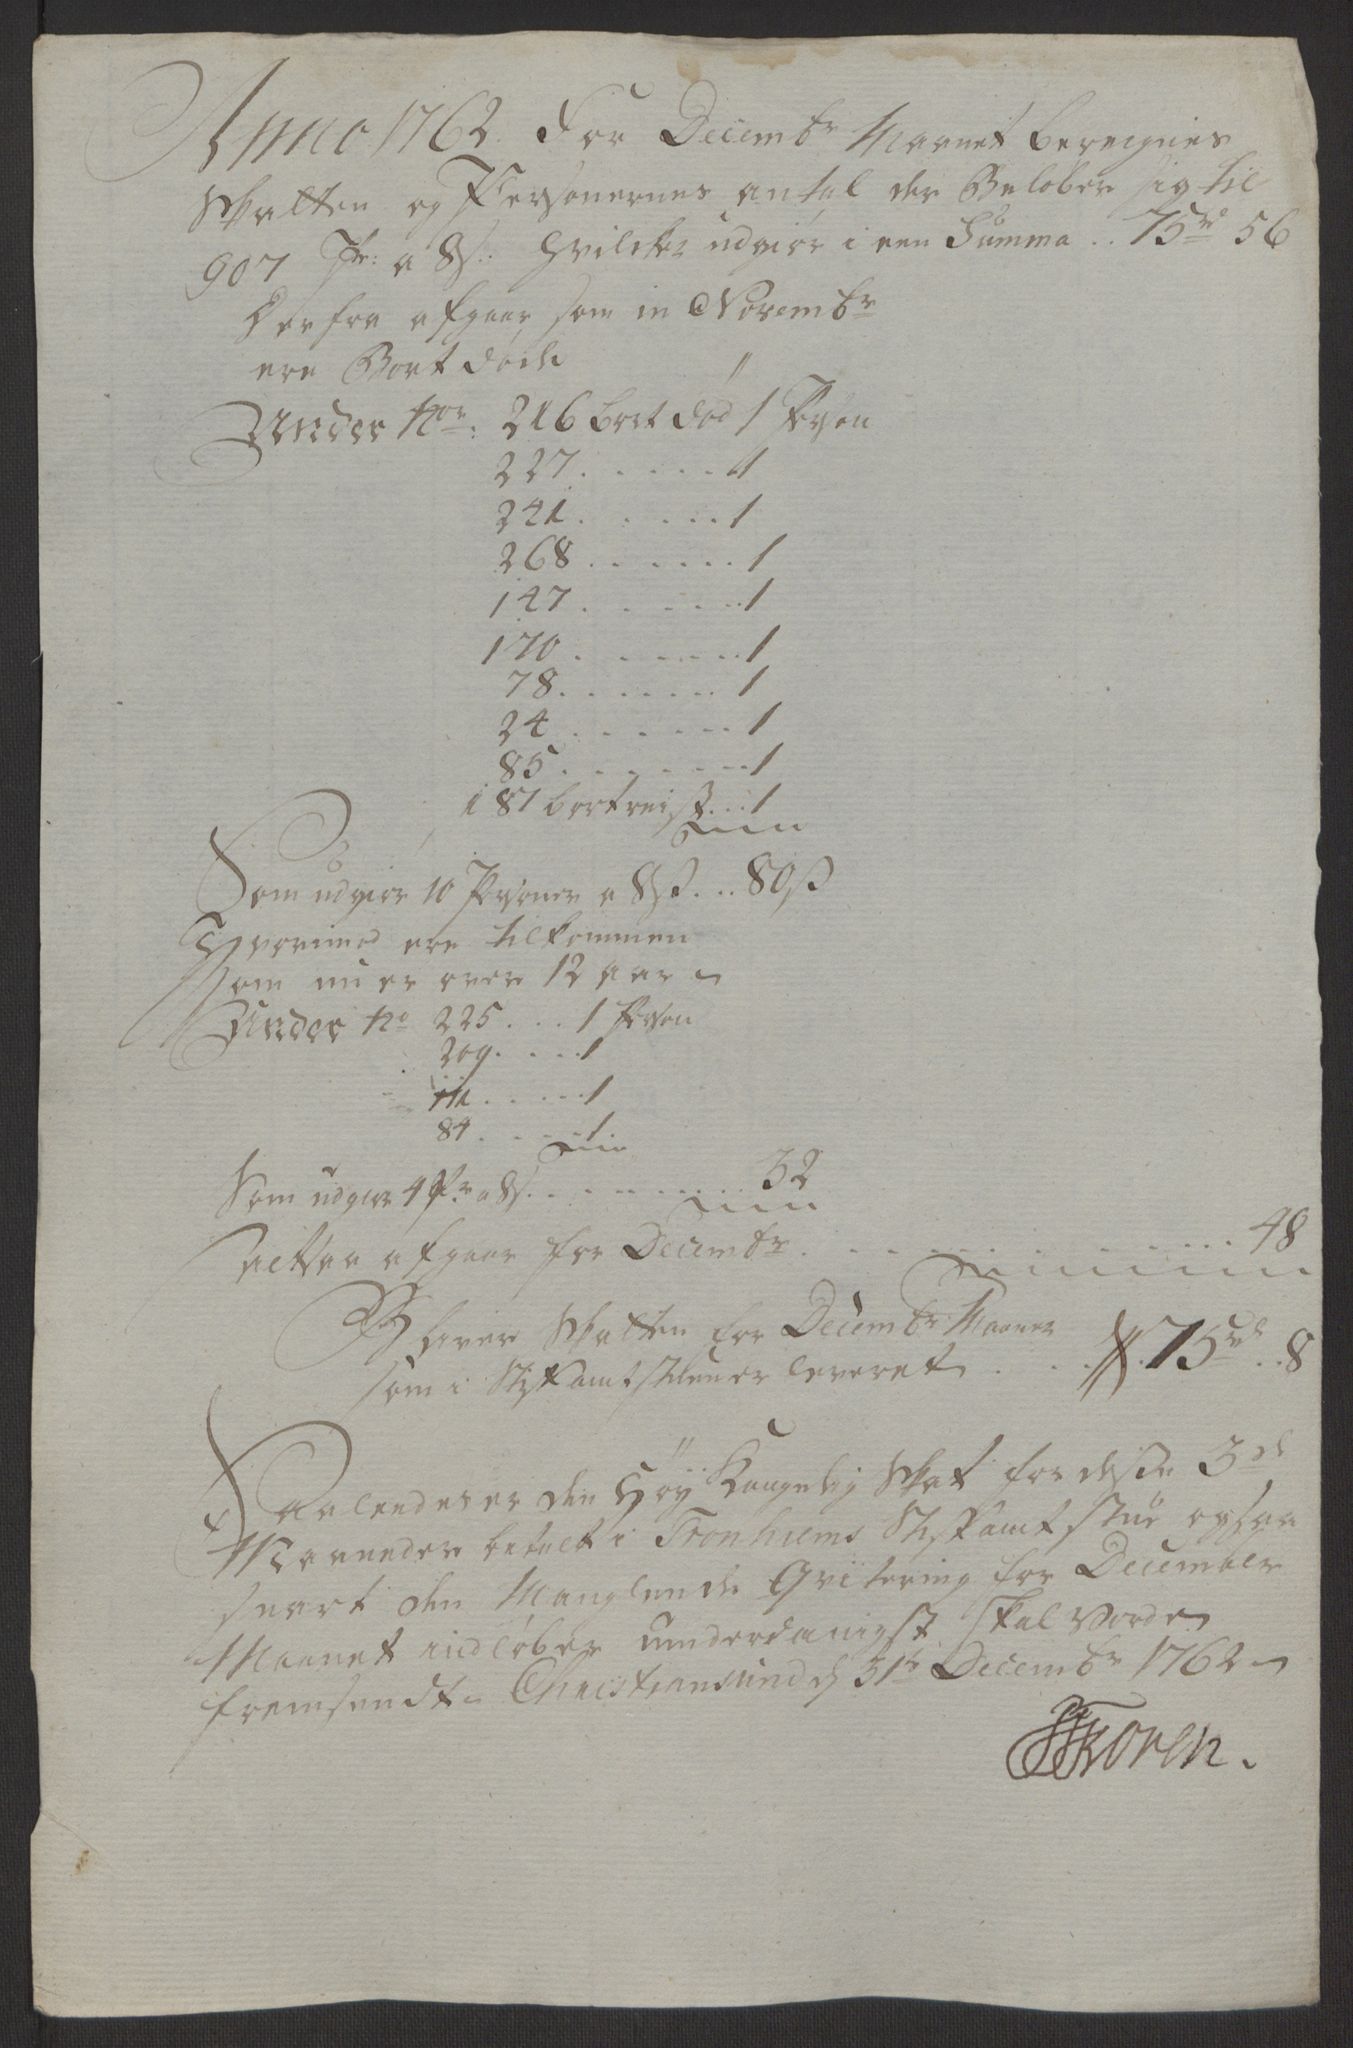 Anno 1762. For Decembr Maanet beregnes
Skatten og Personernes antal der Beløber sig til
907 Pr: a 8 s. hvilcket udgiør i een Summa .. 75 rd 56
Herfra afgaar som in Novembr
ere Bort døde
Under No: 216 bort død 1 Person
227 . . . . . . 1
241 . . . . . . 1
268 . . . . . . 1
147 . . . . . . 1
170 . . . . . . 1
78 . . . . . . 1
24 . . . . . . 1
85 . . . . . . 1
187 bortreist . . . 1
Som udgiør 10 Personer a 8 s . . . 80 s
Hvorimod ere tilkommen
som nu er over 12 aar
Under No 225 . . . 1 Person
209 . . . . 1
111 . . . . 1
84 . . . . 1
Som udgiør 4 Pr a 8 s . . . . . . 32
altsaa afgaar for Decembr . . . . . . 48
Bliver Skatten for Decembr Maanet
som i Stiftamtstuen er leveret . . . . 75 rd .. 8
Saaledes er den Høy Kongelig Skat for disse 3de
Maaneder betalt i Tronhiems Stiftamtstue og saa
snart den Manglende Qvitering for December
Maanet indløber underdanigst skal vorde
fremsendt. Christiansund d 31te Decembr 1762
Koren.